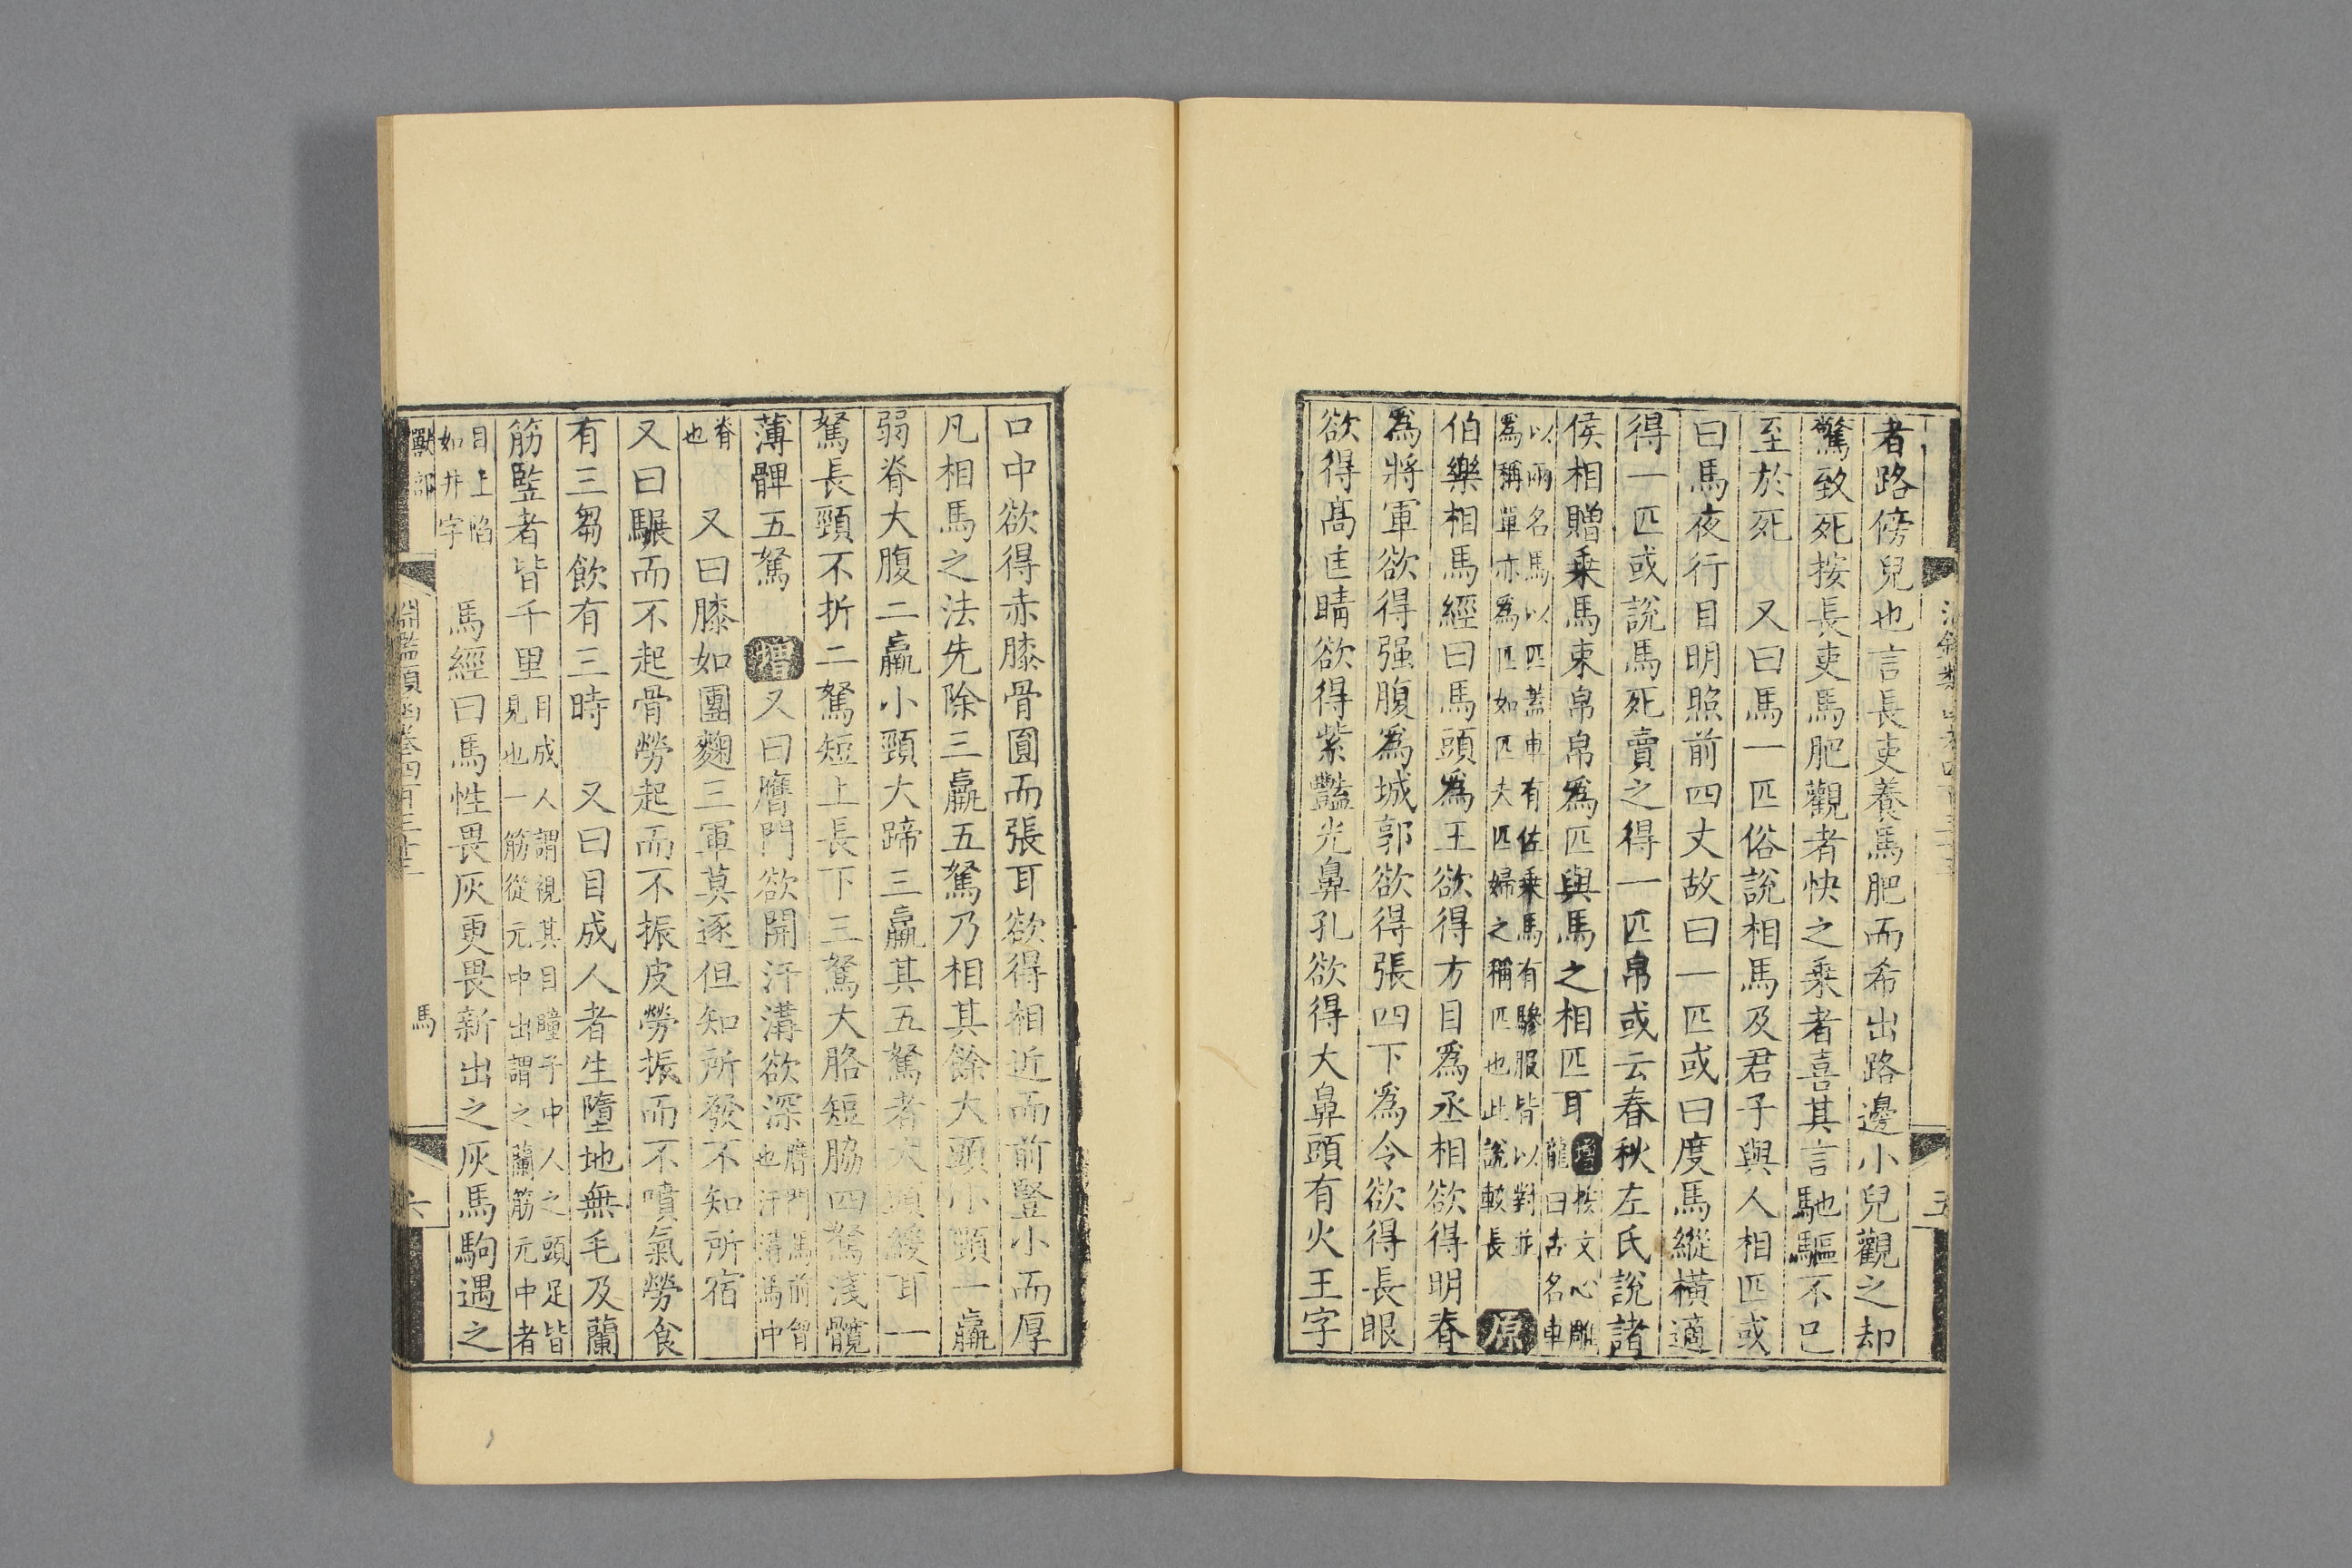 者路傍兒也言長吏養馬肥而希出路邊小兒觀之却
驚致死按長吏馬肥觀者快之乘者喜其言馳驅不已
至於死　又曰馬一匹俗說相馬及君子與人相匹或
曰馬夜行目明照前四丈故曰一匹或曰度馬縱橫適
得一匹或說馬死賣之得一匹帛或云春秋左氏說諸
侯相贈乗馬束帛帛爲匹與馬之相匹耳增按文心雕龍曰古名車
以兩名馬以匹蓋車有佐乗馬有驂服皆以對並爲稱單亦爲匹如匹夫匹婦之稱匹也此說較長　原
伯樂相馬經曰馬頭爲王欲得方目爲丞相欲得明脊
爲將軍欲得强腹爲城郭欲得張四下爲令欲得長眼
欲得高匡睛欲得紫豔光鼻孔欲得大鼻頭有火王字
口中欲得赤膝骨圓而張耳欲得相近而前豎小而厚
凡相馬之法先除三羸五駑乃相其餘大頭小頸一羸
弱脊大腹二羸小頸大蹄三羸其五駑者大頭緩耳一
駑長頸不折二駑短上長下三駑大胳短脇四駑淺髖
薄髀五駑　增又曰膺門欲開汗溝欲深膺門馬前胷也汗溝馬中
脊也　又曰膝如團麴三軍莫逐但知所發不知所宿
又曰騝而不起骨勞起而不振皮勞振而不噴氣勞食
有三芻飲有三時　又曰目成人者生墮地無毛及蘭
筋監者皆千里目成人謂視其目瞳子中人之頭足皆見也一筋從元中出謂之蘭筋元中者
目上陷如井字　馬經曰馬性畏灰更畏新出之灰馬駒遇之
獸部　淵鑑類函卷四百三十三　馬　六